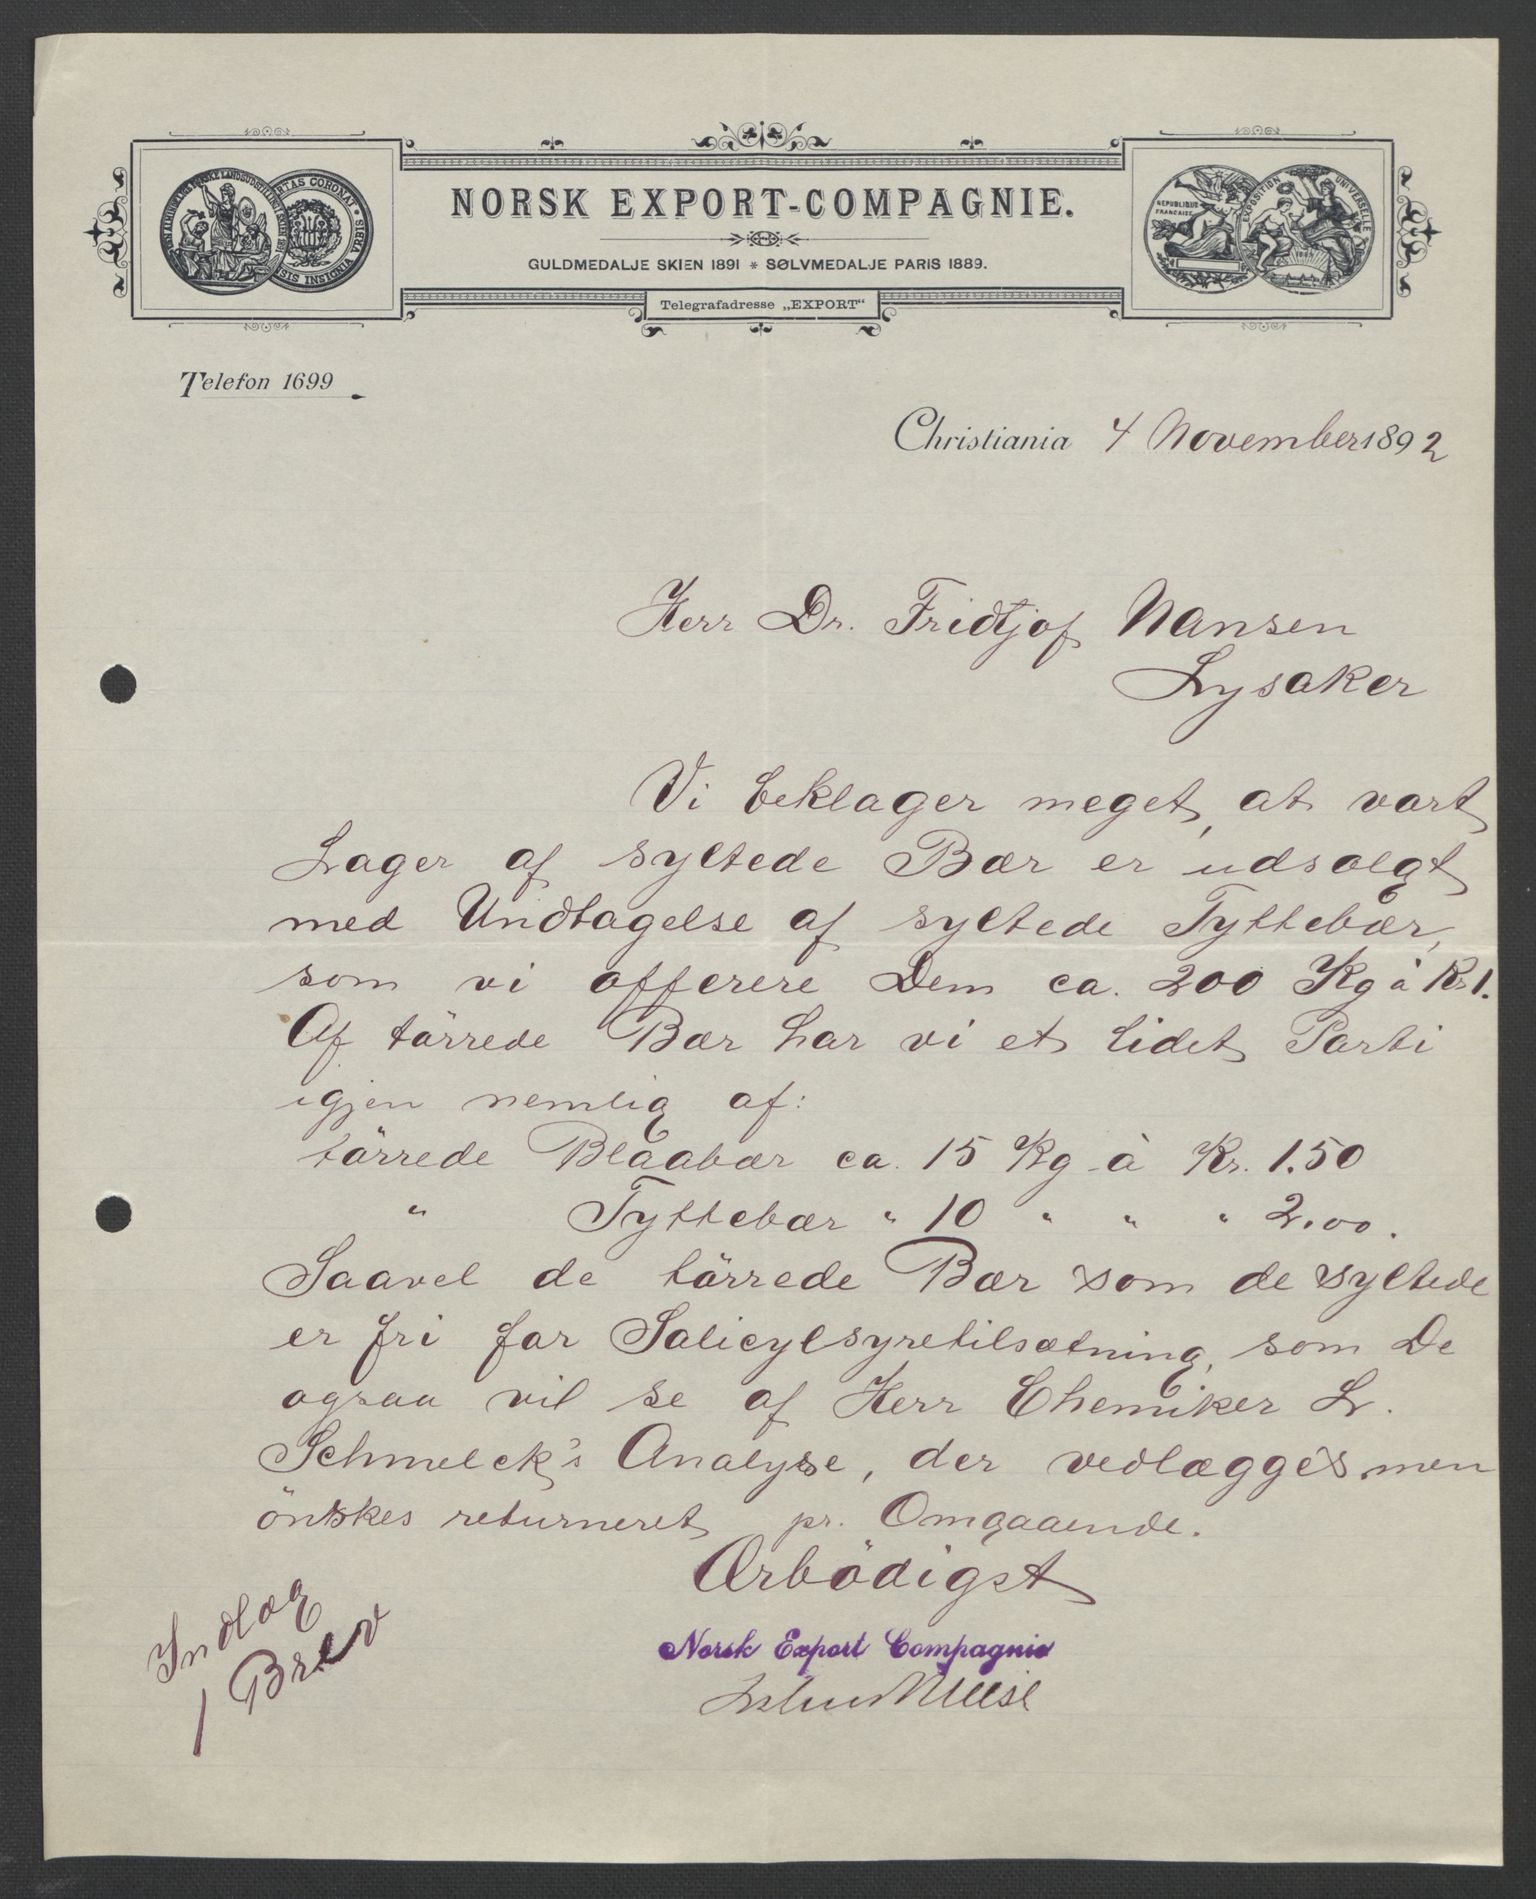 NORSK EXPORT-COMPAGNIE.
GULDMEDALJE SKIEN 1891 * SØLVMEDALJE PARIS 1889.
Telegrafadresse „EXPORT“
REPUBLIQUE FRANCAISE
EXPOSITION UNIVERSELLE
1889
Telefon 1699
Christiania 4 November 1892
Herr Dr. Fridtjof Nansen
Lysaker
Vi beklager meget, at vort
Lager af syltede Bær er udsolgt
med Undtagelse af syltede Tyttebær,
som vi offerere Dem ca. 200 Kg à Kr 1.
Af törrede Bær har vi et lidet Parti
igjen nemlig af:
törrede Blaabær ca. 15 Kg à Kr. 1.50
" Tyttebær " 10 " " " 2.00.
Saavel de törrede Bær som de syltede
er fri for Salicylsyretilsætning, som De
ogsaa vil se af Herr Chemiker L.
Schmelck's Analyse, der vedlægges, men
önskes returneret pr. Omgaaende.
Ærbödigst
Norsk Export Compagnie
Indlæg
1 Brev